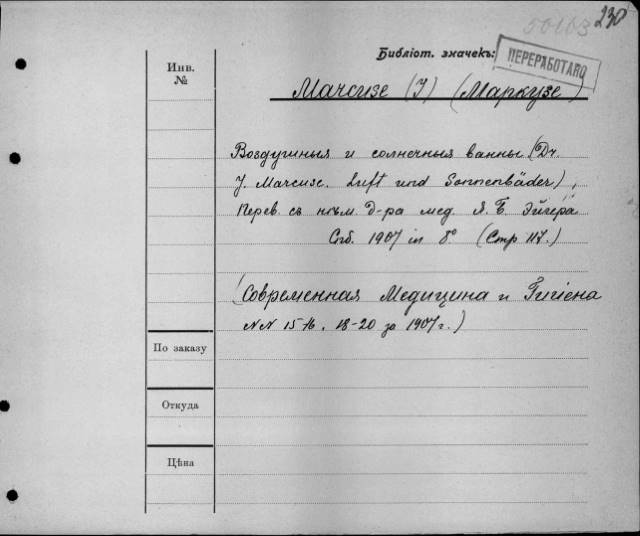 230
50163
Библіот. значекъ:
ПЕРЕРАБОТАНО
Инв.
№
Marcuse (J) (Маркузе)
Воздушныя и солнечныя ванны (Dr.
J. Marcuse. Luft und Sonnenbäder),
Перев. съ нѣм. д-ра мед. Я. Б. Эйгера
Спб. 1907 in 8º (Стр 117.)
(Современная Медицина и Гигіена
NN 15-16, 18-20 за 1907 г.)
По заказу
Откуда
Цѣна